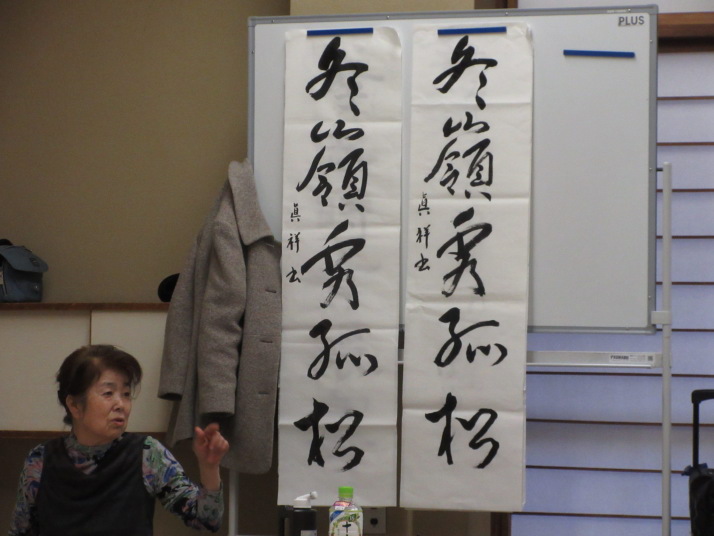 冬嶺秀孤松
眞祥書
冬嶺秀孤松
眞祥書
PLUS